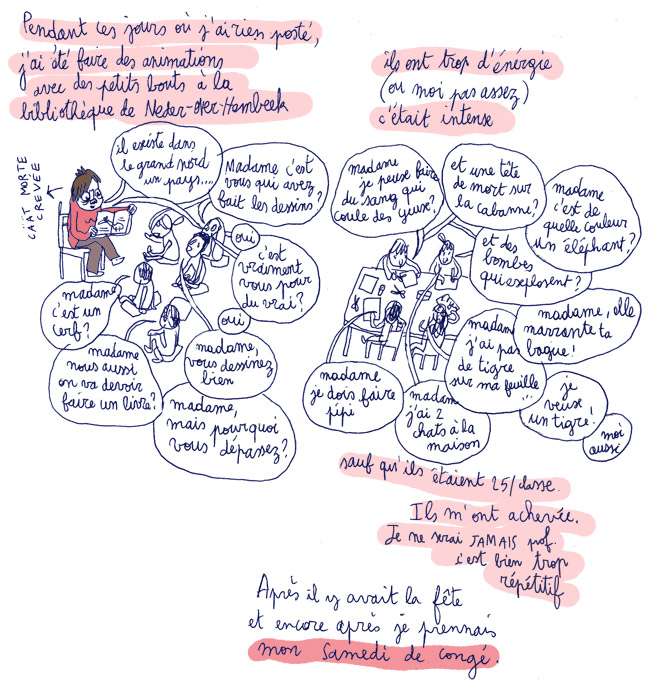 Pendant ces jours où j'ai rien posté,
j'ai été faire des animations
avec des petits bouts à la
bibliothèque de Neder-Over-Hembeek
CAAT MORTE
CREVEE
il existe dans
le grand nord
un pays...
Madame c'est
vous qui avez
fait les dessins?
oui
c'est
vraiment
vous pour
du vrai?
oui
madame
c'est un
cerf?
madame
nous aussi
on va devoir
faire un livre?
madame,
vous dessinez
bien
madame,
mais pourquoi
vous dépassez?
ils ont trop d'énergie
(ou moi pas assez)
c'était intense
madame
je peux faire
du sang qui
coule des yeux?
et une tête
de mort sur
la cabanne?
madame
c'est de
quelle couleur
un éléphant?
et des
bombes
qui explosent?
madame, elle
marrante ta
bague!
madame
j'ai pas
de tigre
sur ma feuille
...
madame
je dois faire
pipi
madame
j'ai 2
chats à la
maison
je
veux
un tigre!
moi
aussi
sauf qu'ils étaient 25/classe.
Ils m'ont achevée.
Je ne serai JAMAIS prof.
c'est bien trop
répétitif
Après il y avait la fête
et encore après je prennais
mon samedi de congé.